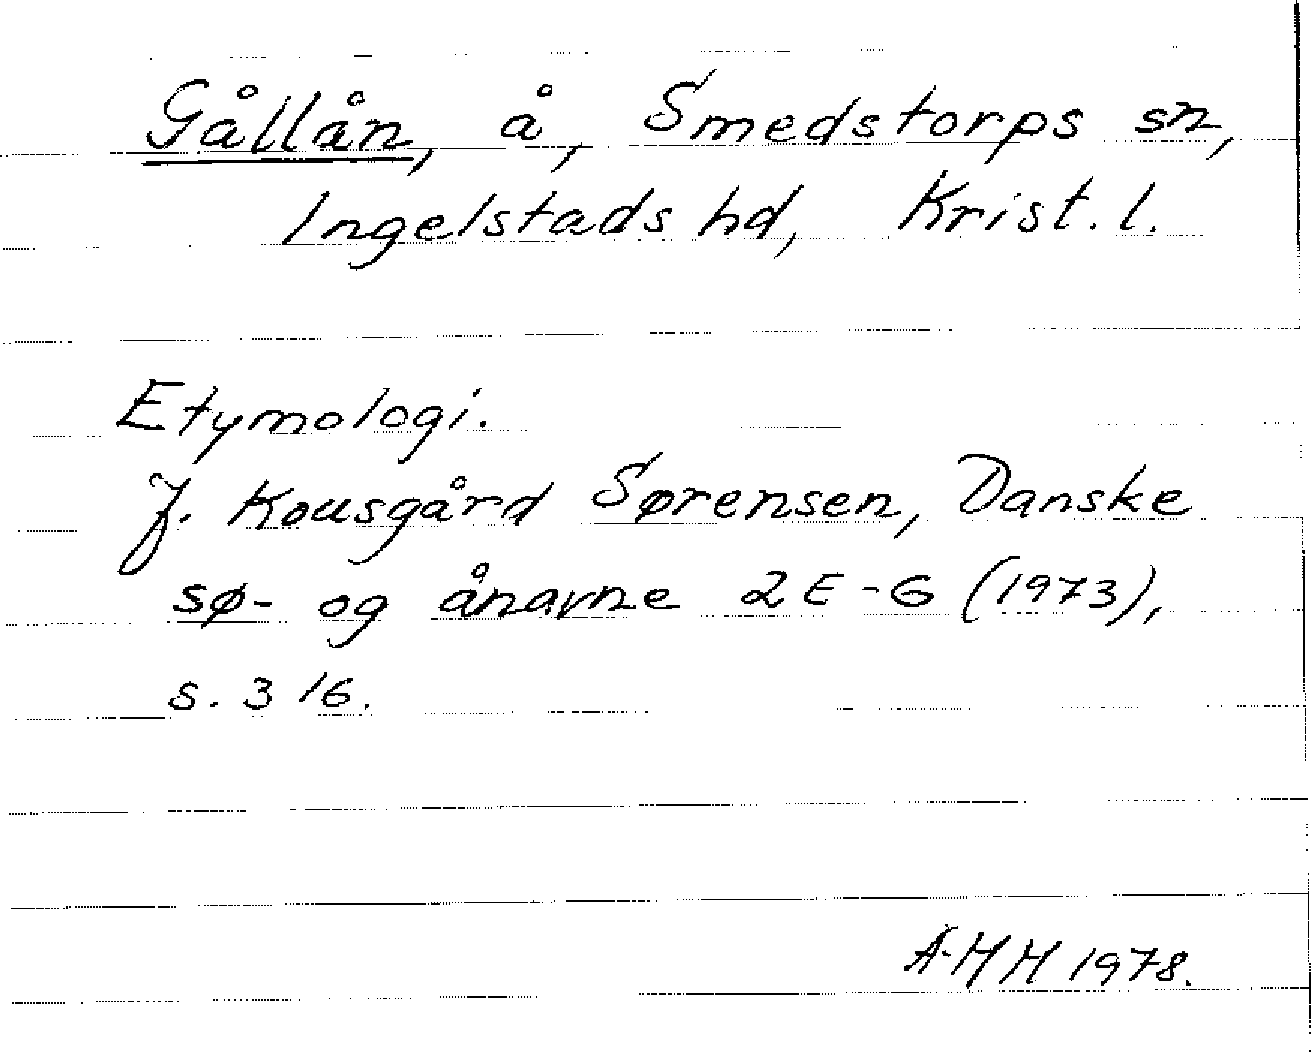 Gållån, å, Smedstorps sn,
Ingelstads hd, Krist. l.
Etymologi.
J. Kousgård Sørensen, Danske
sø- og ånavne 2 E-G (1973),
s. 316.
A-MH 1978.